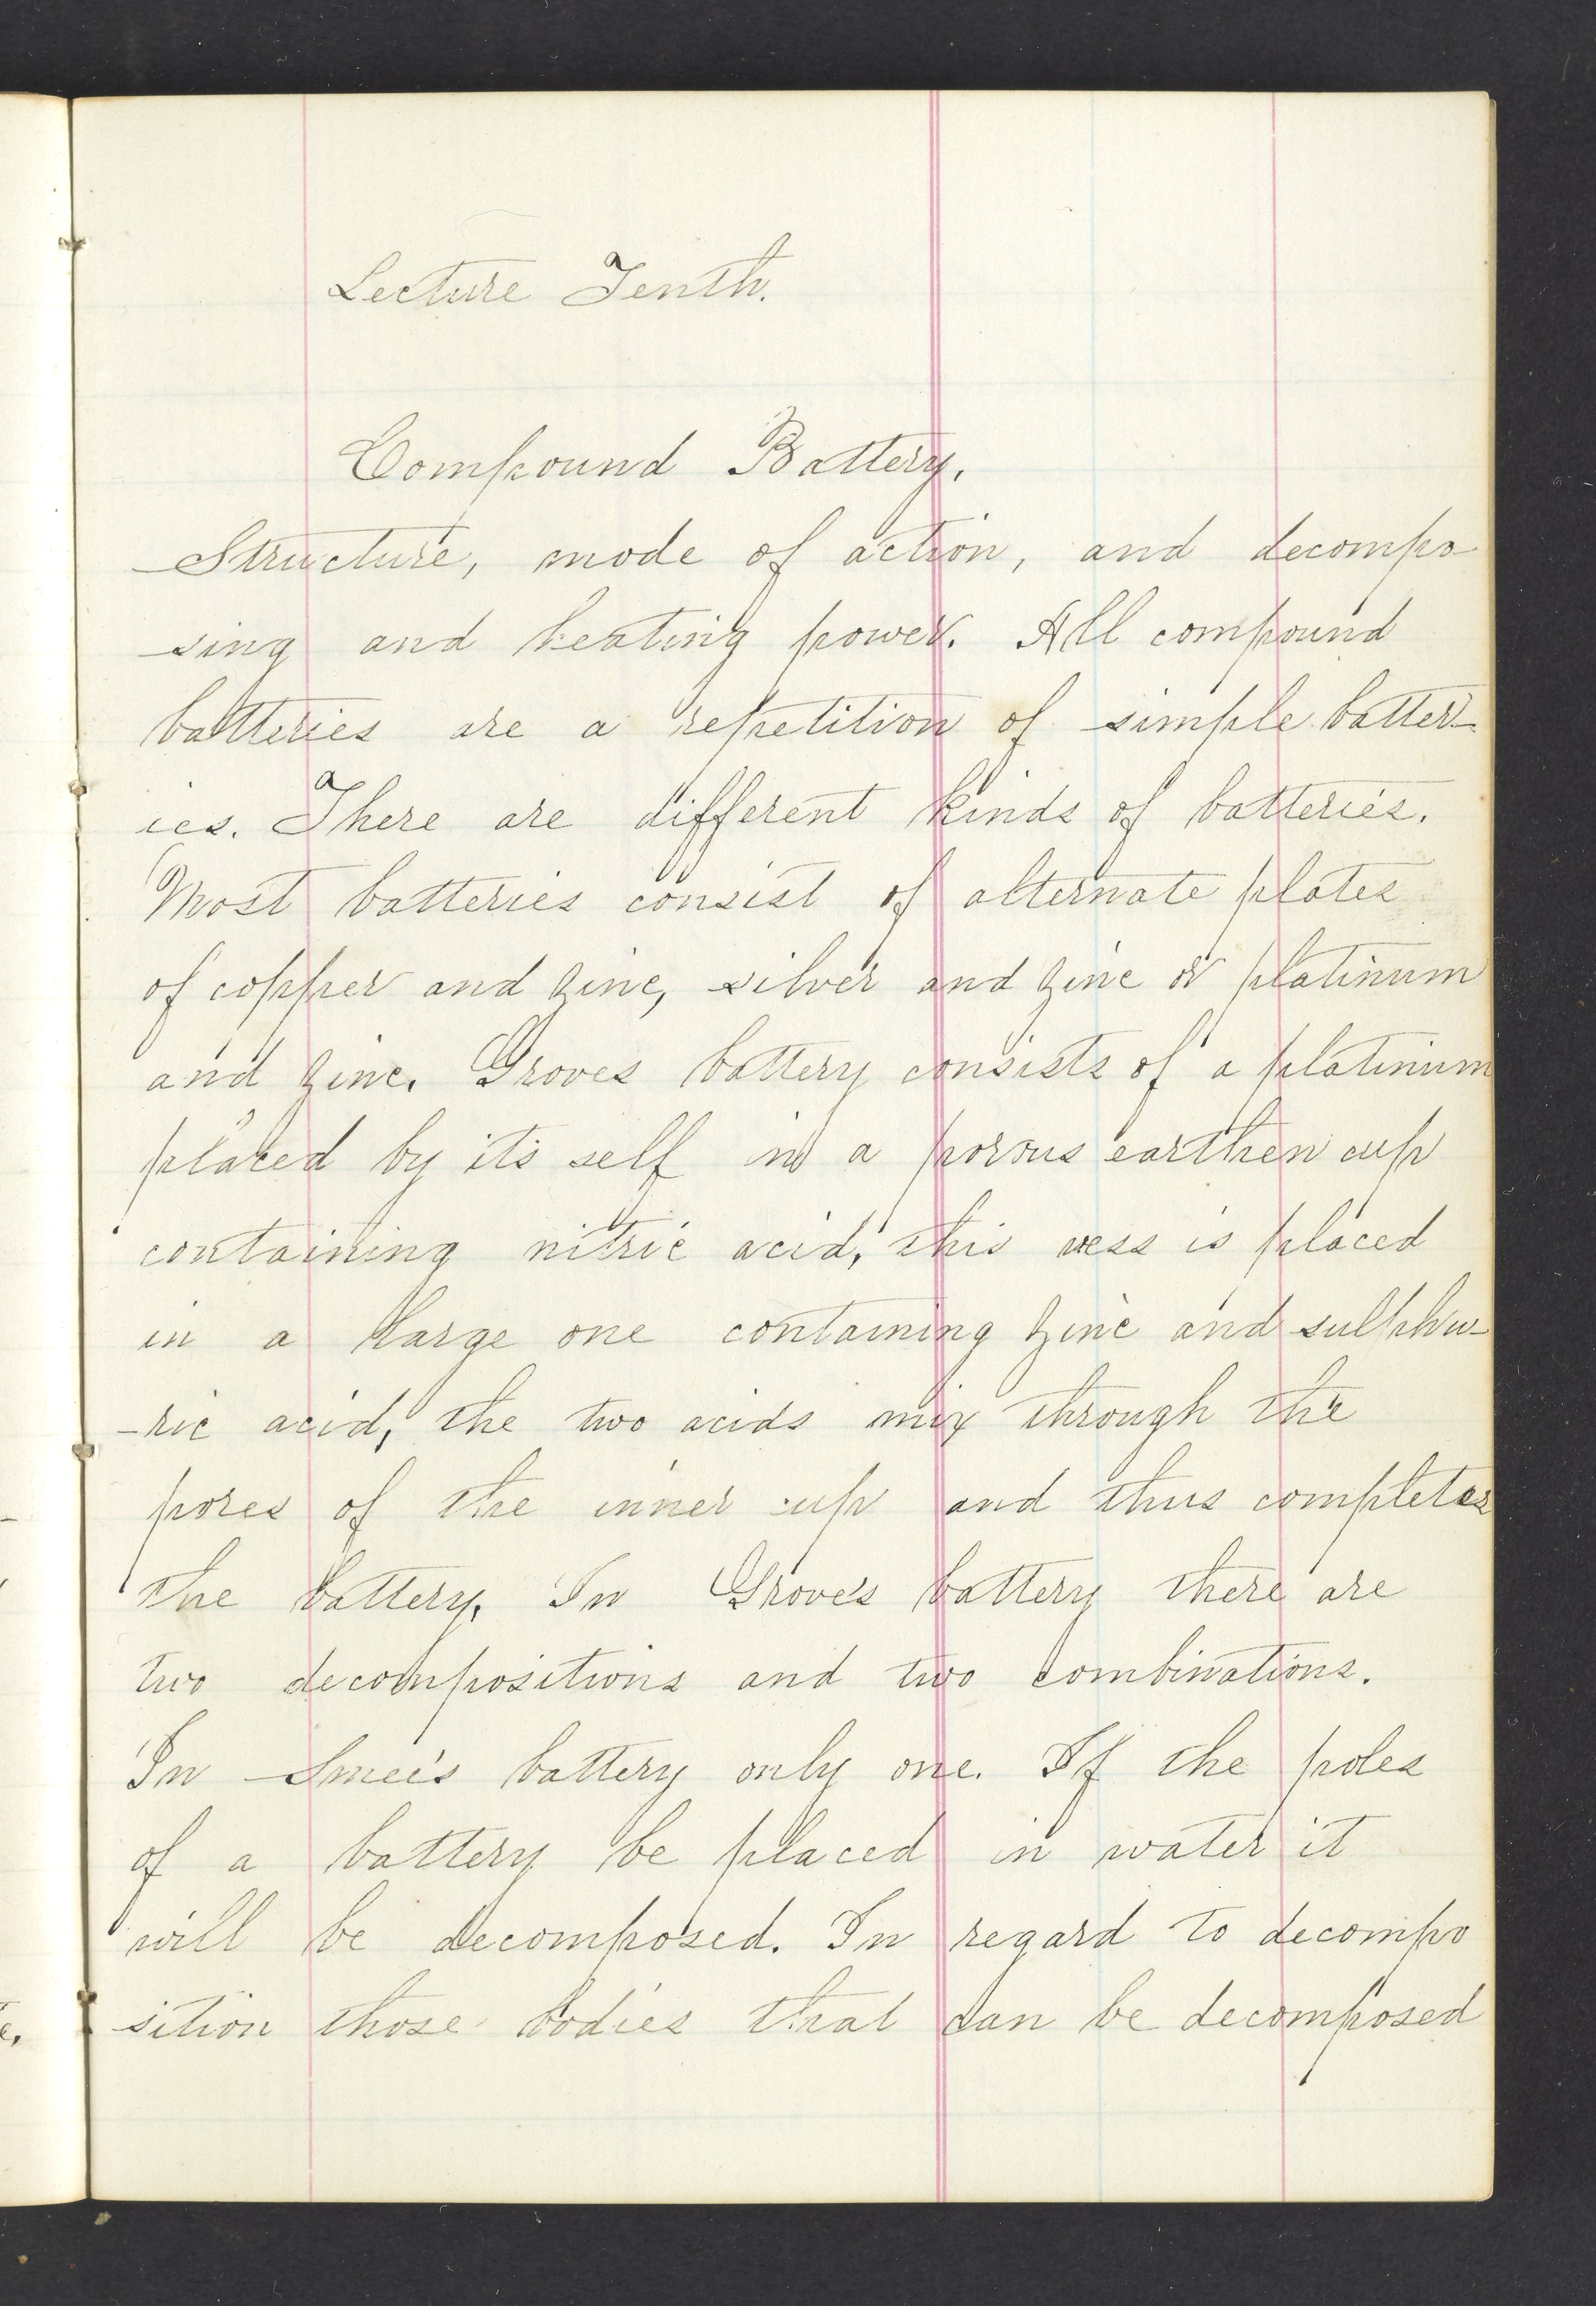 Lecture Tenth.
Compound Battery.
Structure, mode of action, and decompo
sing and heating power. All compound
batteries are a repetition of simple batter-
ies. There are different kinds of batteries.
Most batteries consist of alternate plates
of copper and zinc, silver and zinc or platinum
and zinc. Groves battery consists of a platinum
placed by its self in a porous earthen cup
containing nitric acid, this vess is placed
in a large one containing zinc and sulphu-
-ric acid, the two acids mix through the
pores of the inner cup and thus completes
the battery. In Groves battery there are
two decompositions and two combinations.
In Smee's battery only one. If the poles
of a battery be placed in water it
will be decomposed. In regard to decompo
sition those bodies that can be decomposed